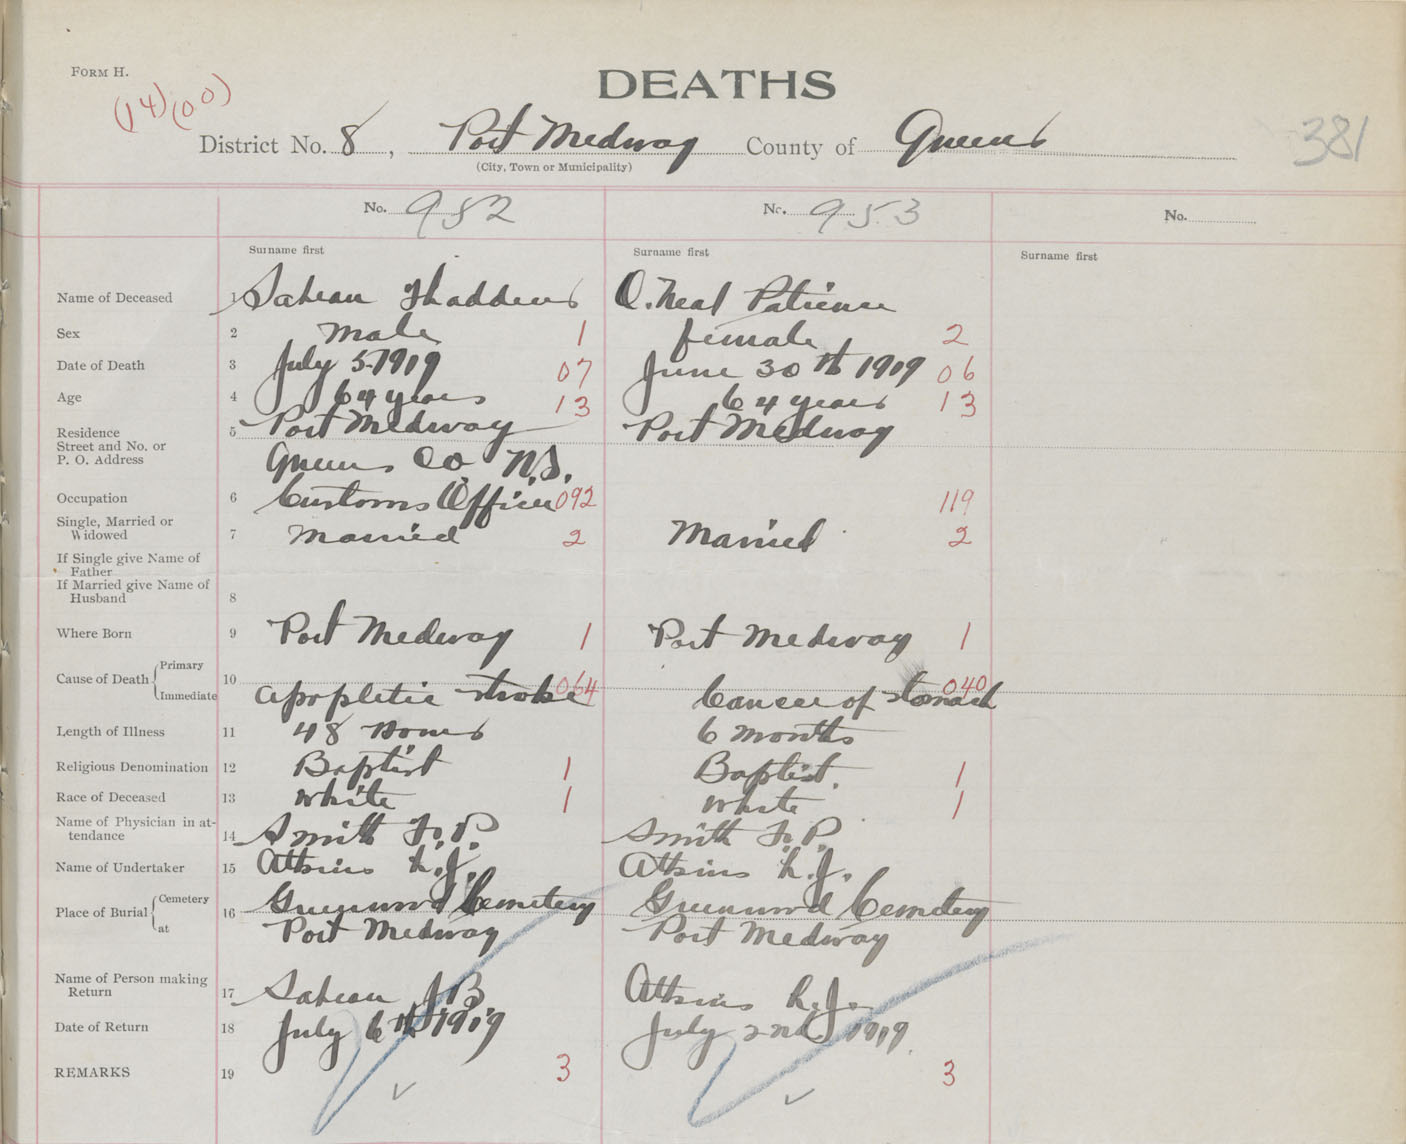 FORM H.
(14)(00)
DEATHS
381
District No. 8, Port Medway County of Queens
(City, Town or Municipality)
No. 952 No. 953 No.
Surname first Surname first Surname first
Name of Deceased 1 Thaddeus O.Neal Patience
Sex 2 Male 1 female 2
Date of Death 3 July 5-1919 07 June 30th 1919 06
Age 4 64 years 13 64 years 13
Residence 5 Port Medway Port Medway
Street and No. or
P. O. Address Queens Co N.S.
Occupation 6 Customs Officer 092 119
Single, Married or
Widowed 7 Married 2 Married 2
If Single give Name of
Father
If Married give Name of
Husband 8
Where Born 9 Port Medway 1 Port Medway 1
Cause of Death { Primary 10 064 040
Immediate apopletic stroke Cancer of stomach
Length of Illness 11 48 Hours 6 months
Religious Denomination 12 Baptist 1 Baptist. 1
Race of Deceased 13 White 1 White 1
Name of Physician in at-
tendance 14 Smith F.P. Smith F.P.
Name of Undertaker 15 Atkins L.J. Atkins L.J.
Place of Burial { Cemetery 16 Greenwood Cemetery Greenwood Cemetery
at Port Medway Port Medway
Name of Person making
Return 17 J B. Atkins L.J.
Date of Return 18 July 6th 1919 July 2nd 1919.
REMARKS 19 3 3